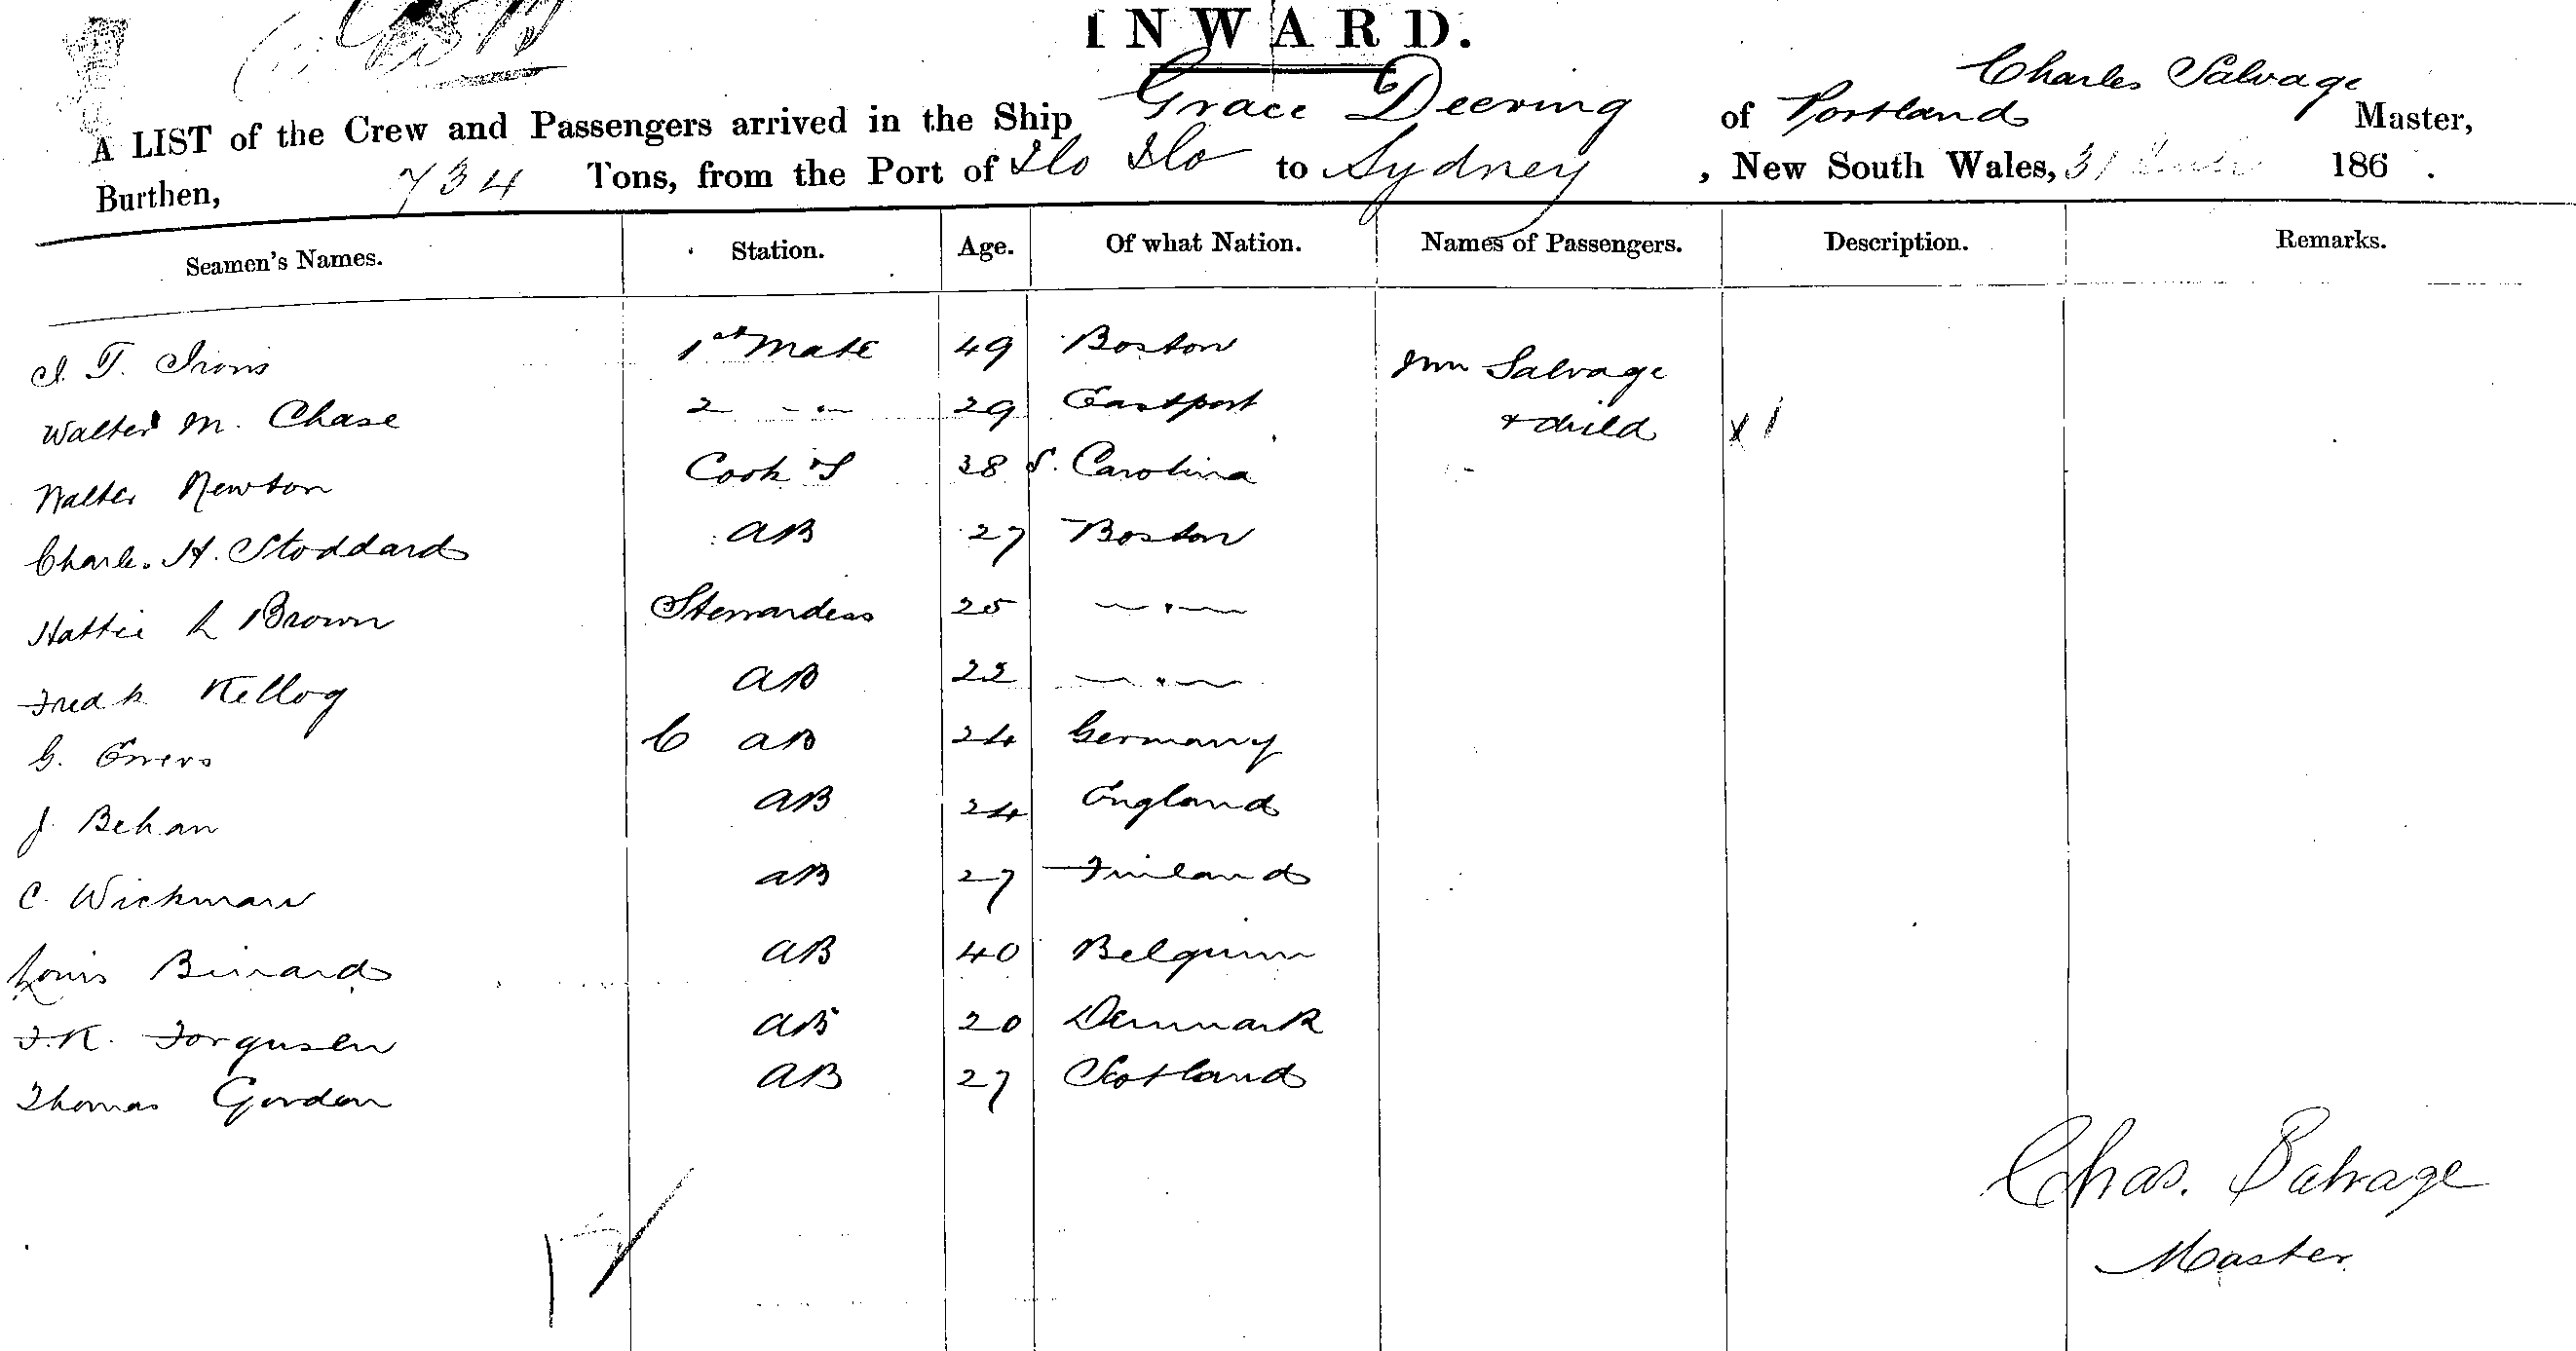 INWARD.
Charles Salvage
A LIST of the Crew and Passengers arrived in the Ship Grace Deering of Portland Master,
Burthen, 734 Tons, from the Port of Ilo Ilo to Sydney, New South Wales, 31 186 .
Seamen's Names. Station. Age. Of what Nation. Names of Passengers. Description. Remarks.
J. T. Irons 1st Mate 49 Boston Mrs Salvage
Walter M. Chase 2 - " - 29 Eastport + child x 1
Walter Newton Cook & S 38 S. Carolina
Charles H. Stoddard AB 27 Boston
Hattie L Brown Stewardess 25 — " —
Fredk Kellog AB 22 — " —
G. Ewers C AB 24 Germany
J. Behan AB 24 England
C. Wickman AB 27 Finland
Louis Binard AB 40 Belguim
F.K. Forgusen AB 20 Denmark
Thomas Gordon AB 27 Scotland
Chas. Salvage
Master